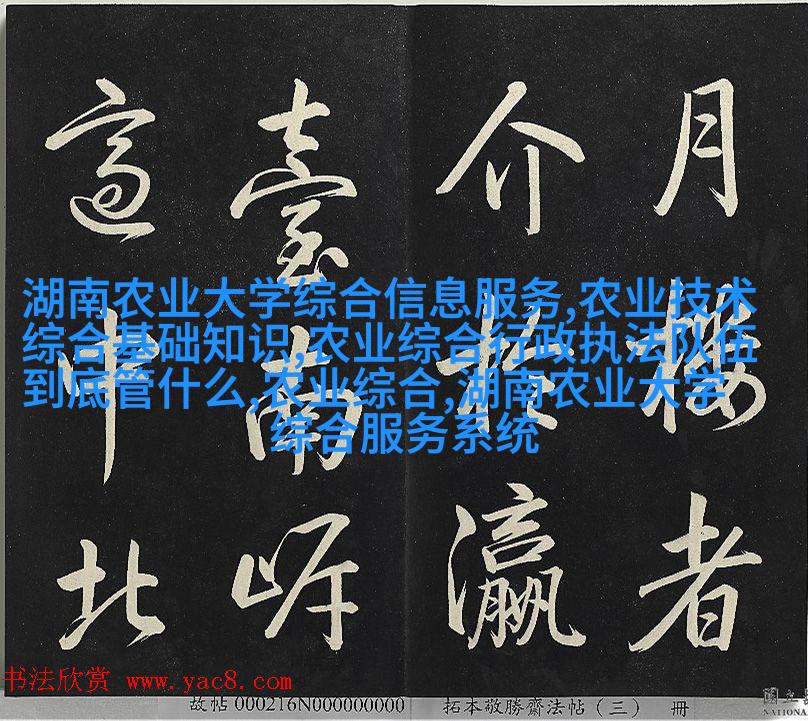 月樓者
介於瀛
臺南岸
適中北
湖南农业大学综合信息服务,农业技术
综合基础知识,农业综合行政执法队伍
到底管什么,农业综合,湖南农业大学
综合服务系统
书法欣赏 www.yac8.com
故帖 000216N000000000
拓本敬勝齋法帖(三) 册
國立
NATIONA